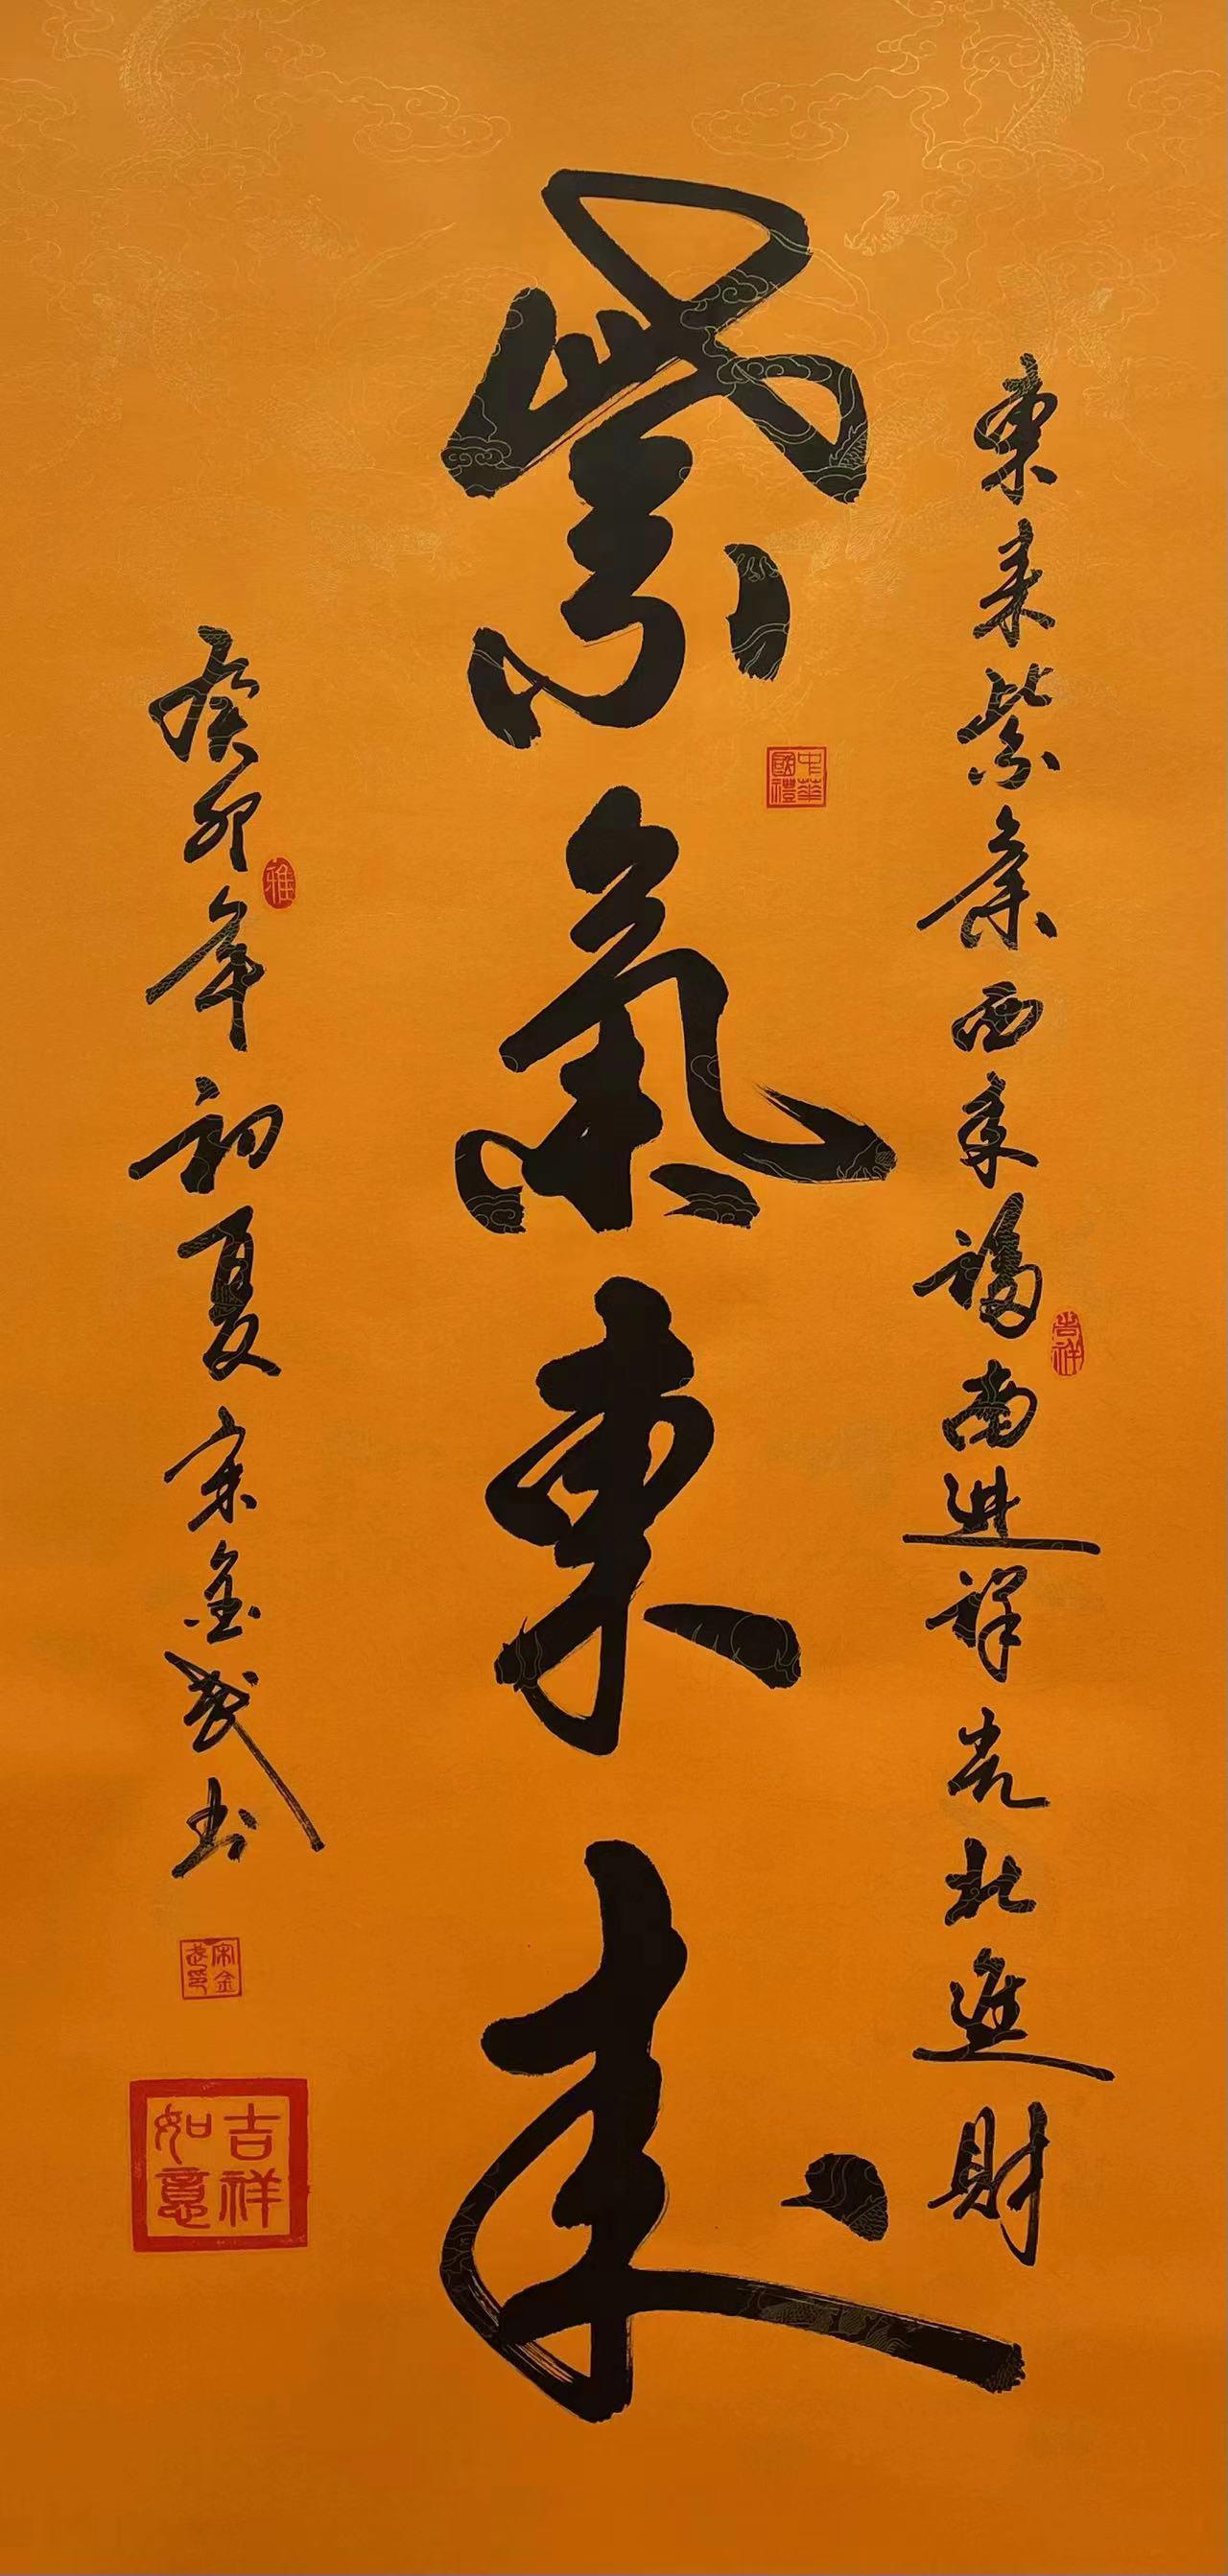 東來紫氣西來福南進祥光北進財
紫氣東來
癸卯年初夏宋金武书
中華國禮
吉祥
雅
宋金武印
吉祥如意